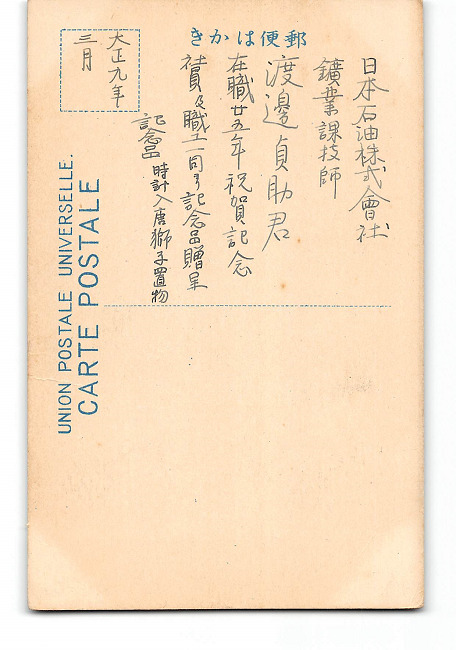 きかは便郵
日本石油株式會社
鑛業課技師
渡邊貞助君
在職廿五年祝賀記念
社員及職工一同ヨリ記念品贈呈
記念品 時計入唐獅子置物
大正九年
三月
UNION POSTALE UNIVERSELLE.
CARTE POSTALE